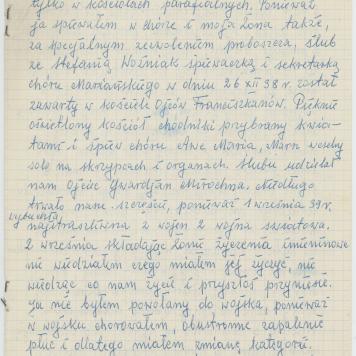 tylko w kościołach parafialnych. Ponieważ
ja śpiewałem w chórze i moja żona także,
za specjalnym zezwoleniem proboszcza, ślub
ze Stefanią Woźniak śpiewaczką i sekretarką
chóru Mariańskiego w dniu 26 XII 38 r. został
zawarty w kościele Ojców Franciszkanów. Pięknie
oświetlony kościół chodniki przybrany kwia-
tami i śpiew chóru Awe Maria, Marsz weselny
solo na skrzypcach i organach. Ślubu udzielał
nam Ojciec Gwardian Mirochna. Niedługo
trwało nasze szczęście, ponieważ 1 września 39 r.
wybuchła
najstraszliwsza z wojen 2 wojna światowa.
2 września składając żonie życzenia imieninowe
nie wiedziałem czego miałem jej życzyć, nie
wiedząc co nam życie i przyszłość przyniesie.
Ja nie byłem powołany do wojska, ponieważ
w wojsku chorowałem, obustronne zapalenie
płuc i dlatego miałem zmianę kategorii.